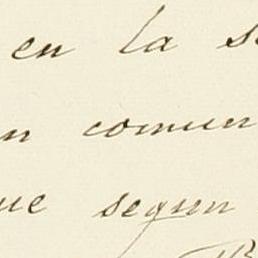 en la s
n comun
ue segun